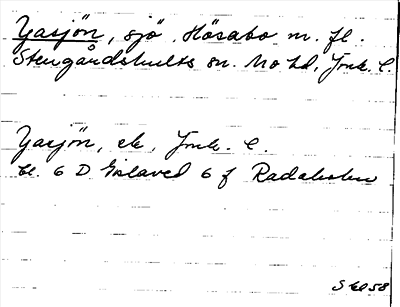 Yasjön, sjö, Hösabo m. fl.
Stengårdshults sn. Mo hd, Jmk. l.
Yasjön, ek, Jmk. l.
bl. 6 D Gislaved 6 f Radaholm
S 58